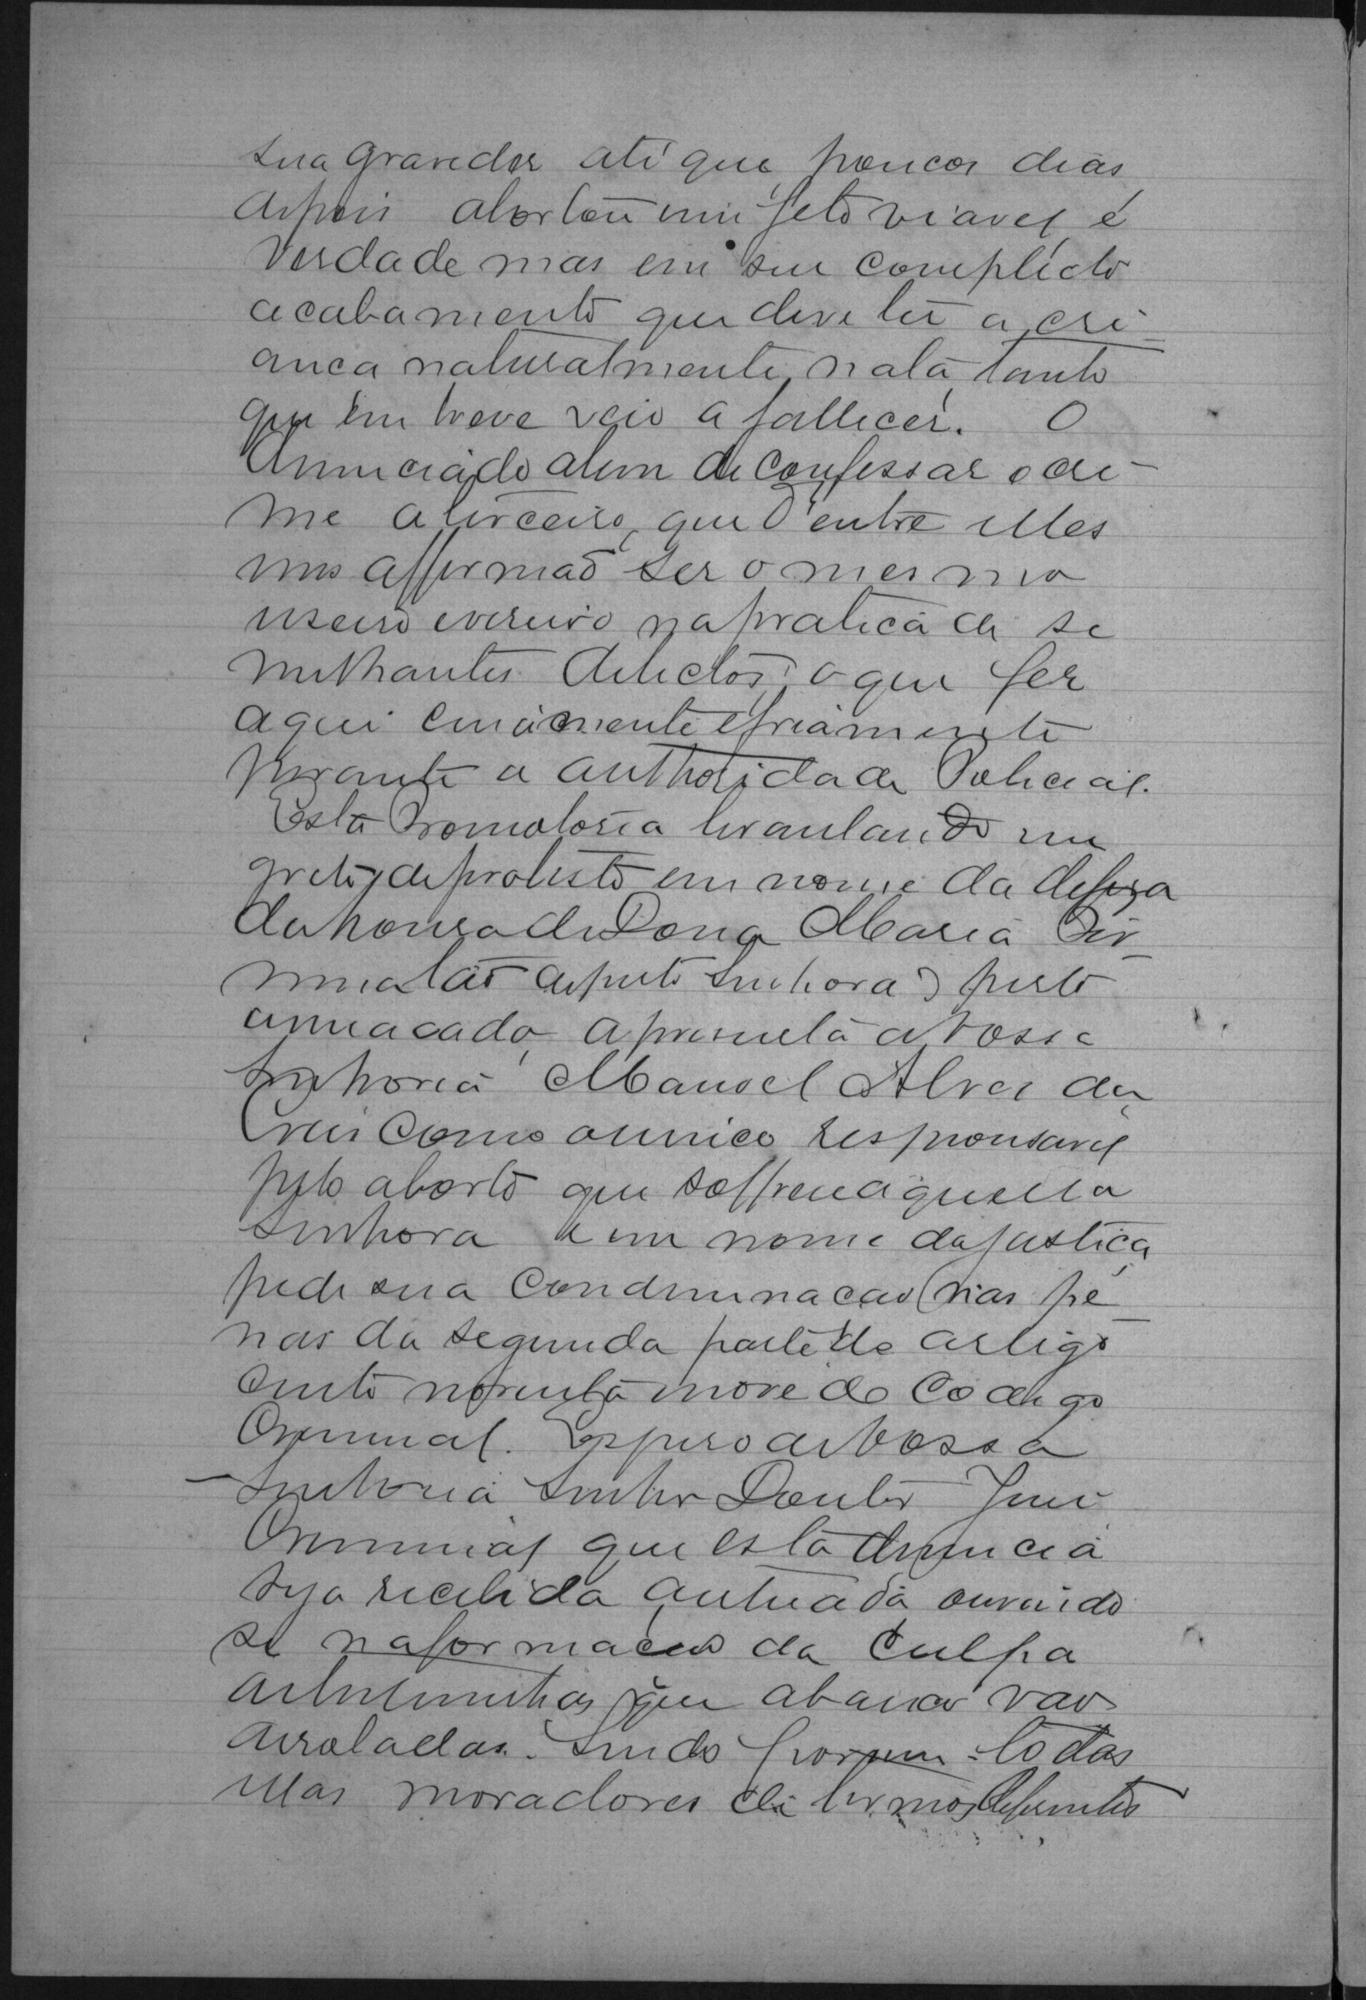 sua gravedez até que poucos dias
depois abortou um feto viavel, é
verdade mas em seu complecto
acabamento que deve ter a cri-
anca naturalmente nata, tanto
que em breve veio a fallecer. O
denunciado alem de confessar o cri-
me a terceiro, que d'entre elles
uns affirmão ser o mesmo
useiro e veseiro na pratica de se
milhantes delictos, o que fez
aqui cinicamente e friamente
perante a authoridade Policial.
Esta Promotoria levantando um
grito de protesto em nome da defeza
da honra de Dona Maria
senhora
ameacado, apresenta a Vossa
Senhoria Manoel Alves da
Cruz como o unico responsavel
pelo aborto que soffreu aquella
senhora e em nome da justiça
pede sua condemnacao nas pe-
nas da segunda parte do artigo
cento noventa nove do Codigo
Criminal. Espero de Vossa
Senhoria Senhor Doutor Juiz
Criminal que esta denuncia
seja recebida autuada ouvindo
se na formacao da culpa
as testemunhas que abaixo vao
arroladas. Sendo porem todas
ellas moradores de termos differentes